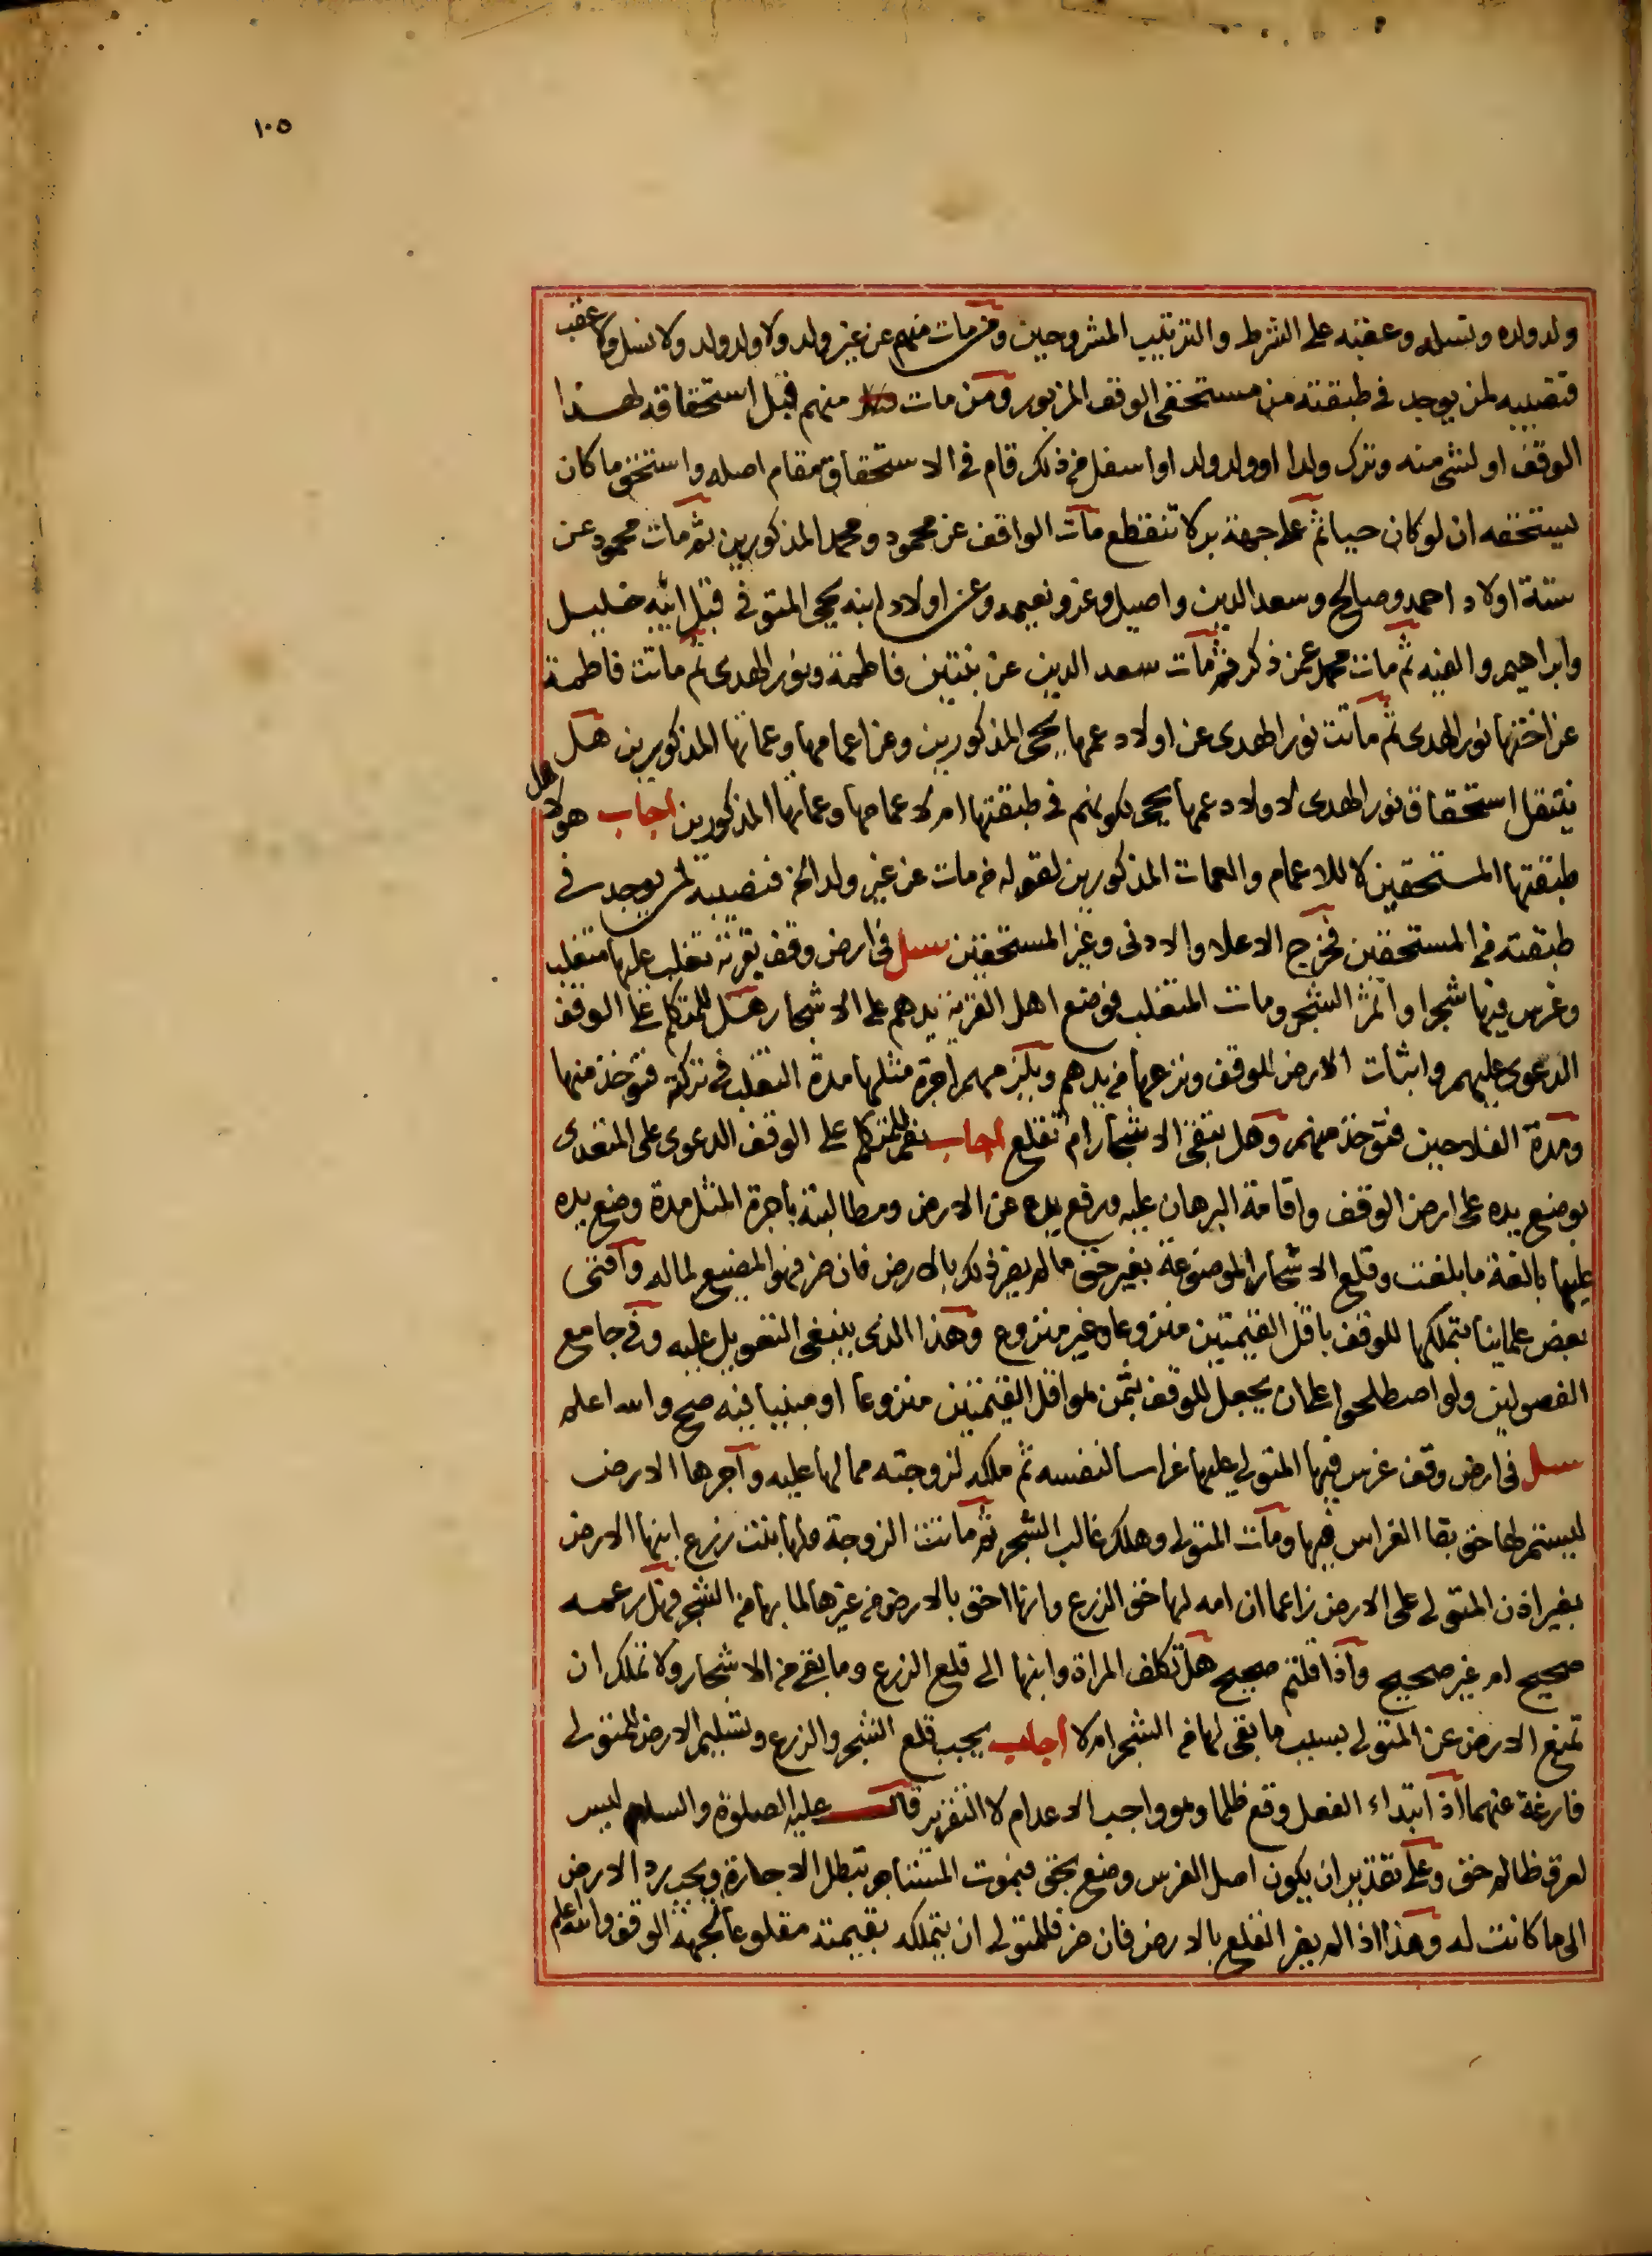 ١٠٥
ولد ولده ونسله وعقبه على الشرط والترتيب المشروحين ومن مات منهم عن غير ولد ولا ولد ولد ولا نسل ولا عقب
فنصيبه لمن يوجد في طبقته من مستحقي الوقف المزبور ومن مات منهم قبل استحقاقه لهذا
الوقف او لشي منه وترك ولدا او ولد ولد او اسفل من ذلك قام في الاستحقاق مقام اصله واستحق ما كان
يستحقه ان لو كان حيا ثم على جهة بر لا تنقطع مات الواقف عن محمود ومحمد المذكورين ثم مات محمود عن
ستة اولاد احمد وصالح وسعد الدين واصيل وعز ونعيمه وعن اولاد ابنه يحيى المتوفى قبل ابيه خليل
وابراهيم والفيه ثم مات محمد عمن ذكر ثم مات سعد الدين عن بنتين فاطمة ونور الهدى ثم ماتت فاطمة
عن اختها نور الهدى ثم ماتت نور الهدى عن اولاد عمها يحيى المذكورين وعن اعمامها وعماتها المذكورين هل
ينتقل استحقاق نور الهدى لاولاد عمها يحيى لكونهم في طبقتها ام لاعمامها وعماتها المذكورين اجاب هو لاهل
طبقتها المستحقين لا للاعمام والعمات المذكورين لقوله من مات عن غير ولد الخ فنصيبه لمن يوجد في
طبقته من المستحقين فخرج الاعلا والادنى وغير المستحقين سئل في ارض وقف بقرية تغلب عليها متغلب
وغرس فيها شجرا واثمر الشجر ومات المتغلب فوضع اهل القرية يدهم على الاشجار هل للمتكلم على الوقف
الدعوى عليهم واثبات الارض للوقف ونزعها من يدهم ويلزمهم اجرة مثلها مدة التغلب في تركته فتوخذ منها
ومدة الفلاحين فتوخذ منهم وهل يبقى الاشجار ام تقلع اجاب نعم للمتكلم على الوقف الدعوى على المتعدى
بوضع يده على ارض الوقف واقامة البرهان عليه ورفع يده عن الارض ومطالبته باجرة المثل مدة وضع يده
عليها بالغة ما بلغت وقلع الاشجار الموضوعة بغير حق ما لم يضر ذلك بالارض فان ضر فهو المضيع لماله وافتى
بعض علماينا بتملكها للوقف باقل القيمتين منزوعا وغير منزوع وهذا الذى ينبغى التعويل عليه وفي جامع
الفصولين ولو اصطلحوا على ان يجعل للوقف بثمن لو اقل القيمتين منزوعا او مبنيا فيه صح والله اعلم
سئل في ارض وقف غرس فيها المتولى عليها غراسا لنفسه ثم ملكه لزوجته مما لها عليه وآجرها الارض
ليستمر لها حق بقا الغراس فيها ومات المتولى وهلك غالب الشجر ثم ماتت الزوجة ولها بنت زرع ابنها الارض
بغير اذن المتولى على الارض زاعما ان امه لها حق الزرع وانها احق بالارض من غيرها لما بها من الشجر فهل زعمه
صحيح ام غير صحيح واذا قلتم صحيح هل تكلف المراة وابنها الى قلع الزرع وما بقى من الاشجار ولا تملك ان
تمنع الارض عن المتولى بسبب ما بقى لها من الشجر ام لا اجاب يجب قلع الشجر والزرع وتسليم الارض للمتولى
فارغة عنهما اذ ابتداء الفعل وقع ظلما وهو واجب الاعدام لا التقرير قال عليه الصلوة والسلام ليس
لعرق ظالم حق وعلى تقدير ان يكون اصل الغرس وضع بحق فبموت المستاجر تبطل الاجارة ويجب رد الارض
الى ما كانت له وهذا اذا لم يضر القلع بالارض فان ضر فللمتولى ان يتملكه بقيمته مقلوعا لجهة الوقف والله اعلم